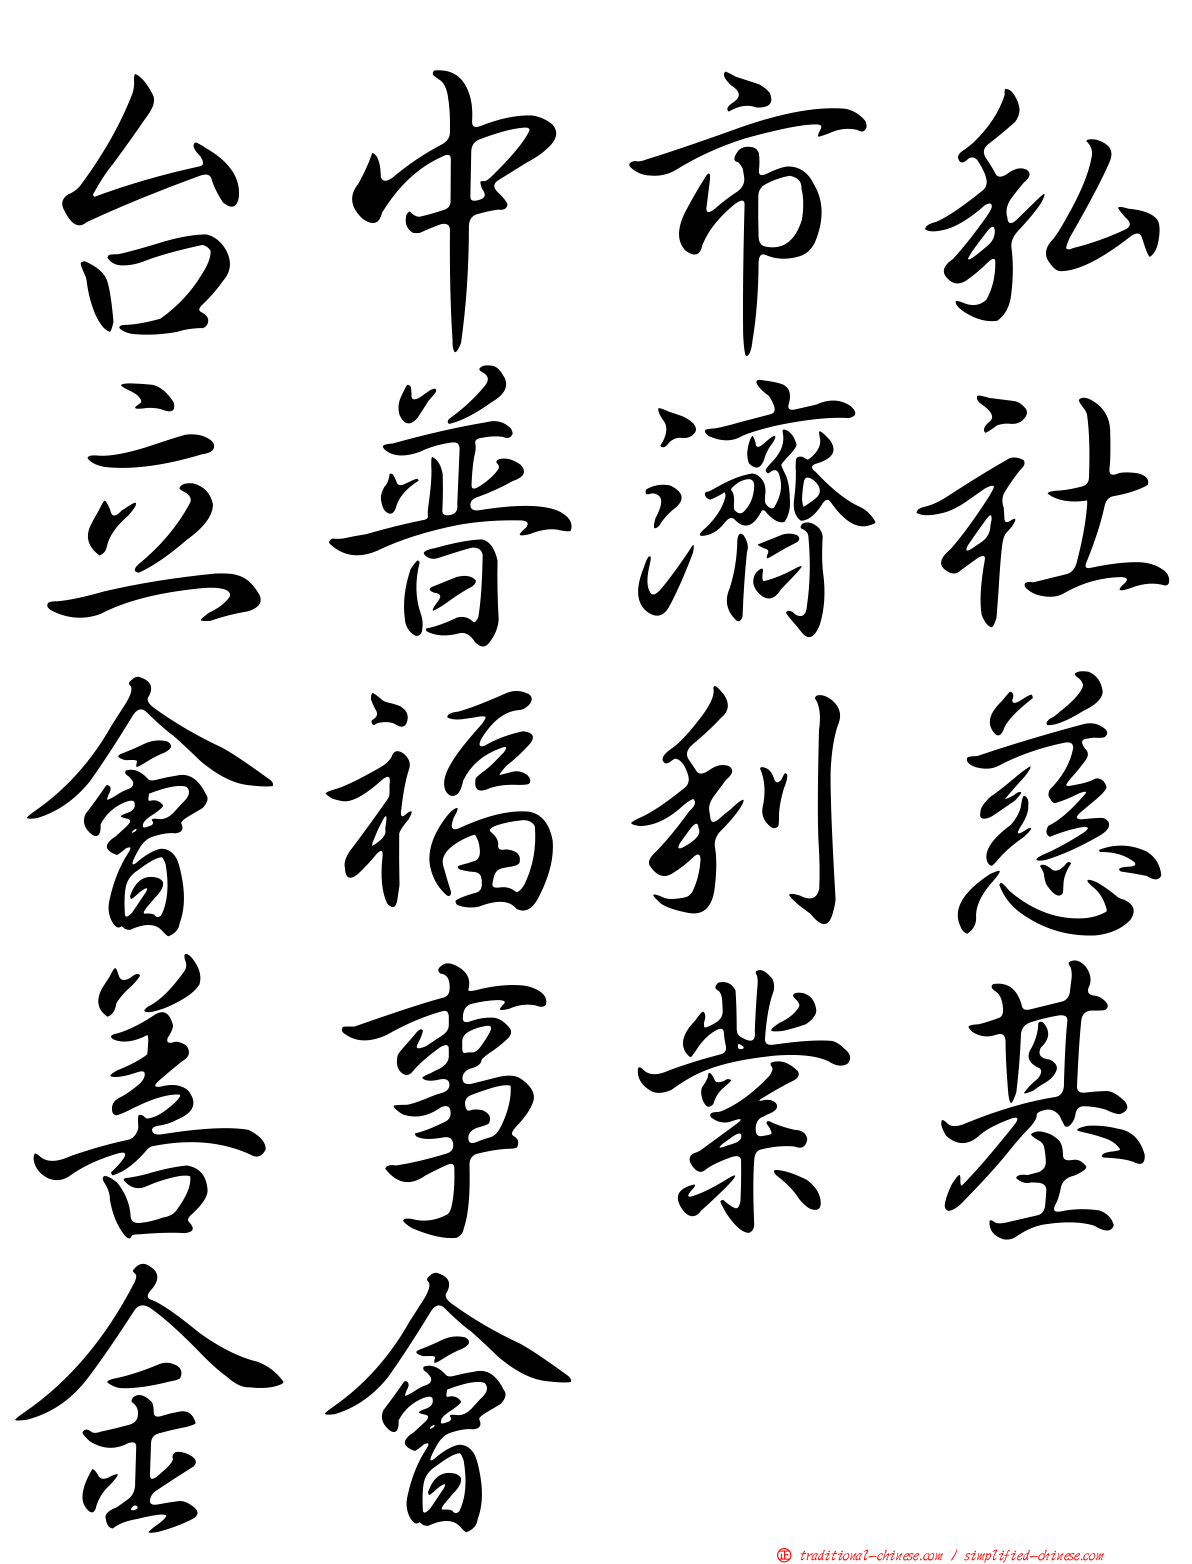 台中市私
立普濟社
會福利慈
善事業基
金會
正 traditional-chinese.com / simplified-chinese.com